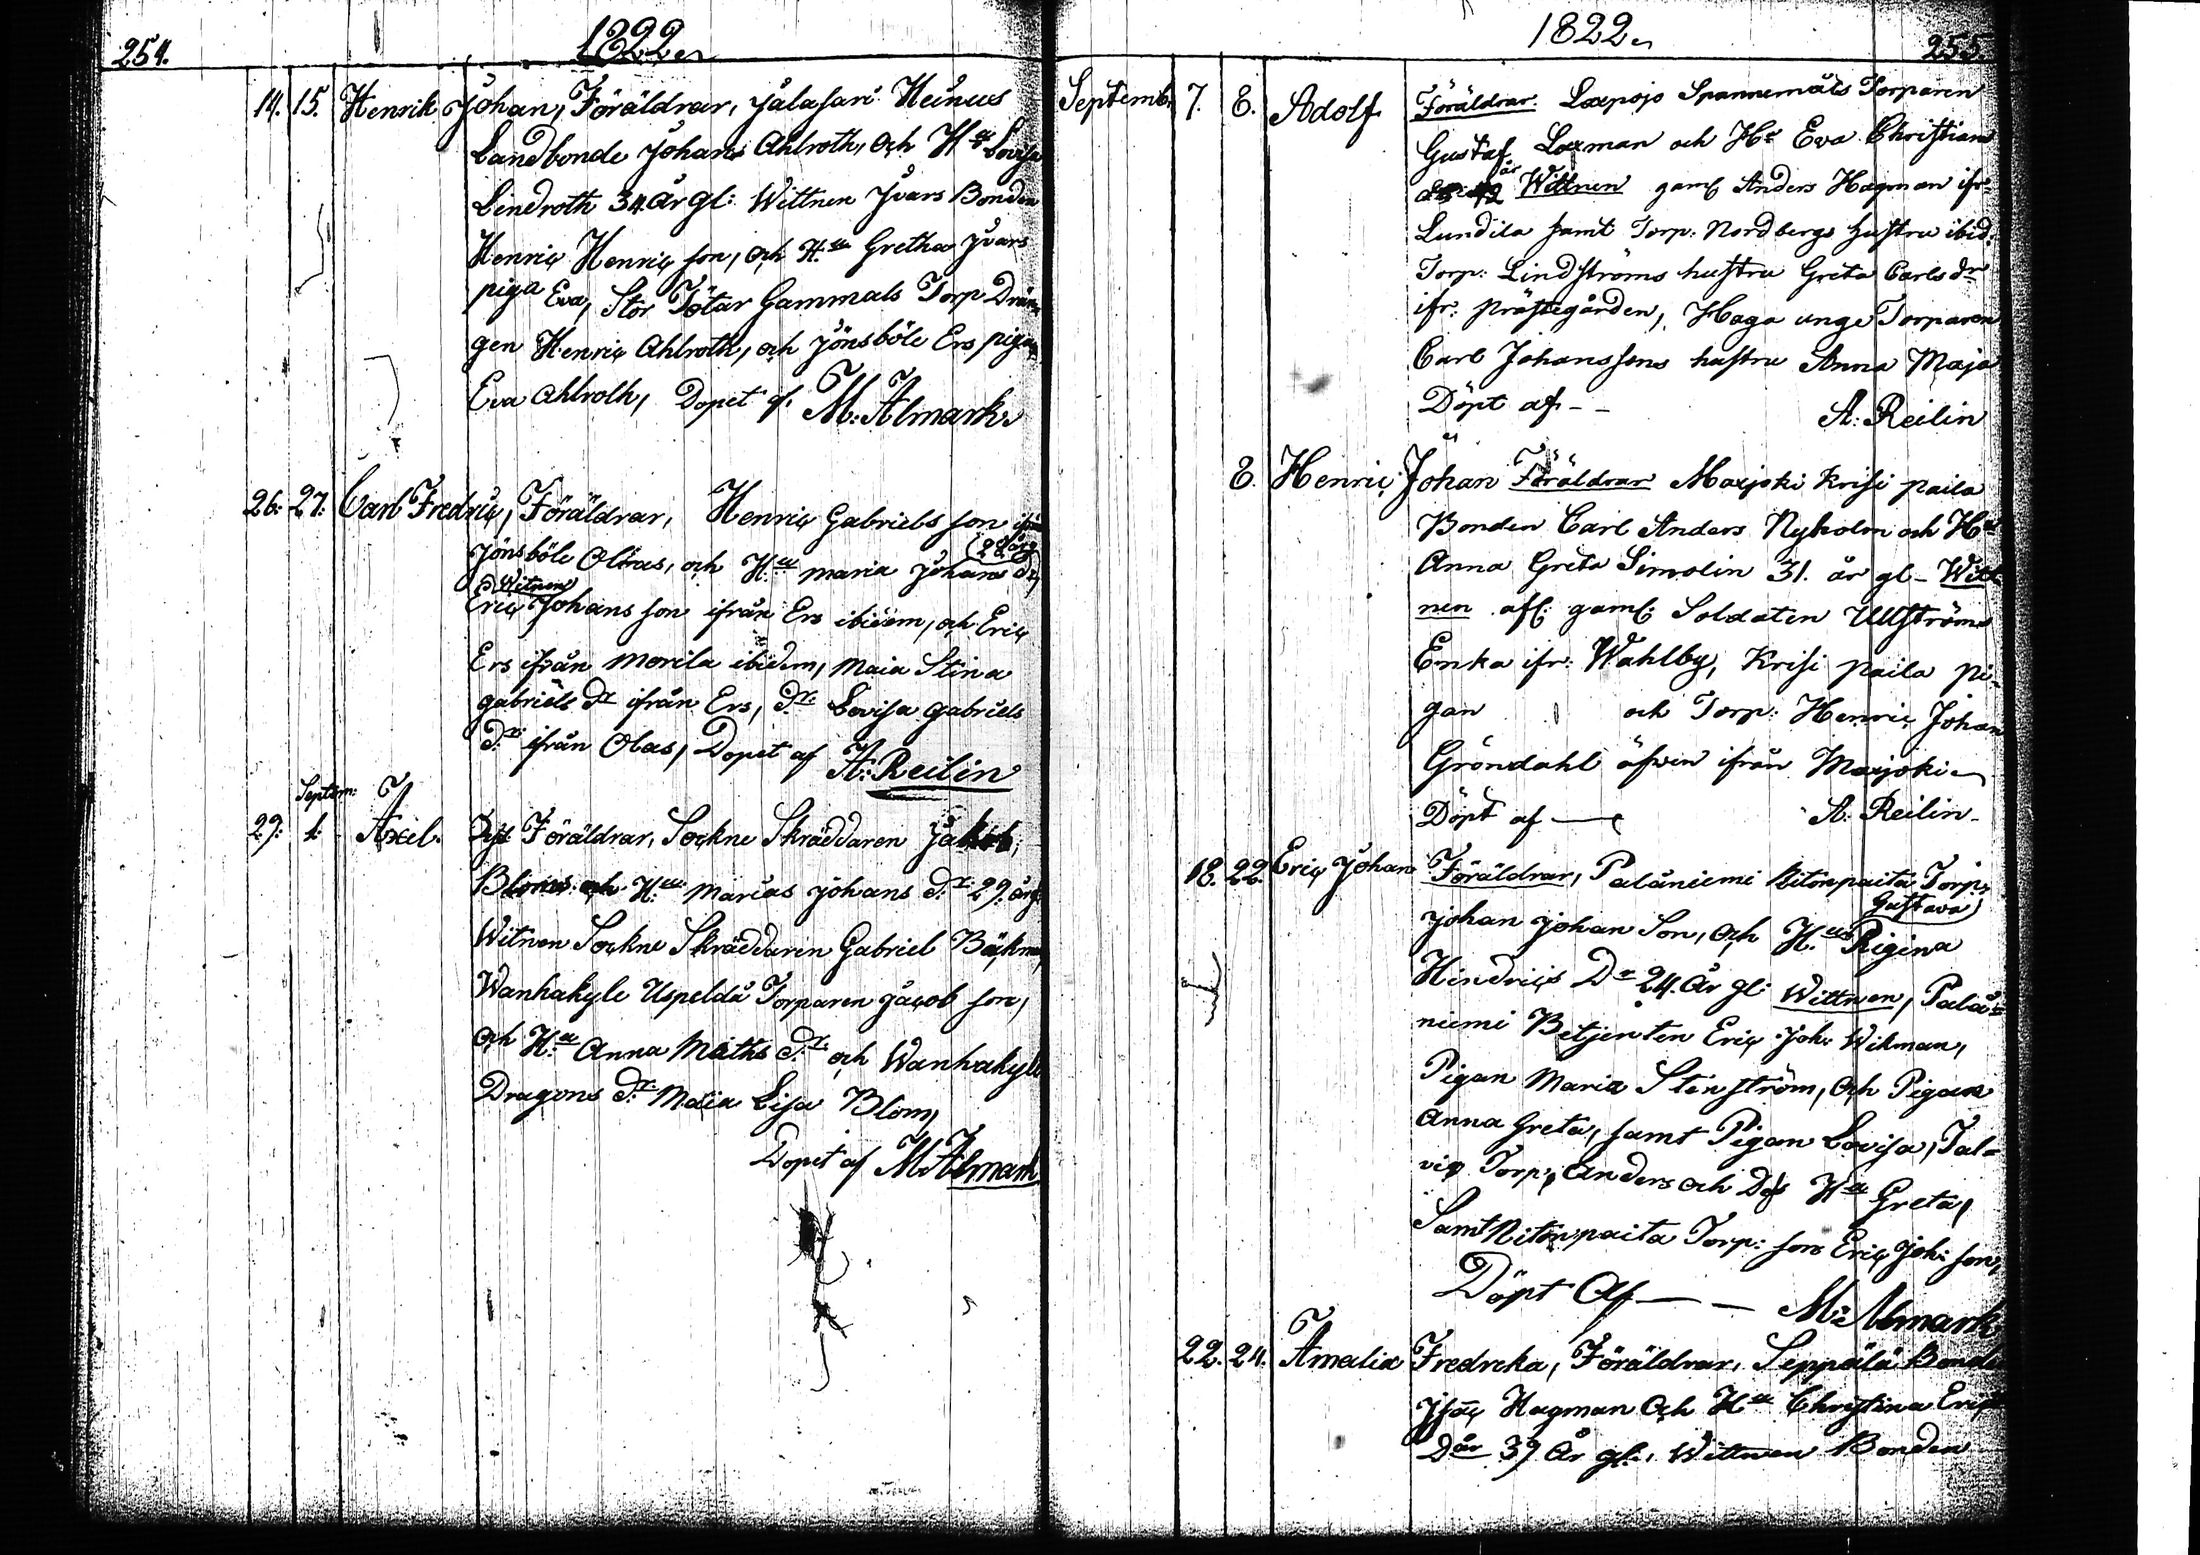 254.
1822.
14. 15. Henrik Johan, Föräldrar, Jälasari Heinus
Landbonde Johans Ahlroth, och H:u Lovisa
Lindroth 34 År gl: Wittnen Jvars Bonden
Henric Henric son, och H:u Gretha Jvars
piga Eva, Stor Tötar Gammals Torp Drän
gen Henric Ahlroth, och Jönsböle Ers piga
Eva Ahlroth, Dopet af M: Almark.
26: 27: Carl Fredric, Föräldrar, Henric Gabriels son ifrån
Jönsböle Olbras, och H:u Maria Johans dr,
Witnen
Eric Johans son ifrån Ers ibidem, och Eric
Ers ifrån Morila ibidem, Maia Stina
gabriels dr ifrån Ers, dr: Lovisa gabriels
dr: ifrån Olas, Dopet af A: Reilin
Septem:
29: 1: Axel. Föräldrar, Sockne Skräddaren Jakob,
Bloms och H:u Marias Johans dr: 29. årg
Witnen Sockne Skräddaren Gabriel Bäckman,
Wanhakyle Uspeldä Torparen Jacob son,
och H:u Anna Maths dr: och Wanhakyle
Dragons dr: Maia Lisa Blom,
Dopet af M. Almark
1822.
255.
Septemb. 7. 8. Adolf Föräldrar. Laxpojo Spannemäls Torparen
Gustaf Laxman och H:u Eva Christians
år
42 Wittnen gaml Anders Hagman ifr:
Lundila samt Torp: Nordbergs hustru ibid.
Torp: Lindströms hustru Greta Carls dr
ifr: Prästegården, Haga unge Torparen
Carl Johanssons hustru Anna Maja
Döpt af - - A: Reilin
8. Henric Johan Föräldrar Marjoki Krisi paila
Bonden Carl Anders Nyholm och H:u
Anna Greta Simolin 31. år gl - Witt
nen afl: gaml: Soldaten Ullströms
Enka ifr: Wahlby, Krisi paila pi-
gan och Torp: Henric Johan
Gröndahl äfwen ifrån Marjoki
Döpt af — A: Reilin
18. 22. Eric Johan Föräldrar, Paläniemi Ritonpaita Torp:
Gustava
Johan Johan Son, och H:u Rigina
Hindrics Dr 24. År gl: Wittnen, Palä=
niemi Betjenten Eric Joh: Wikman,
Pigan Maria Stenström, och Pigan
Anna Greta, samt Pigan Lovisa, Tal=
vic Torp: Anders och Ds H:u Greta,
Samt Ritonpaita Torp: sons Eric Joh: son,
Döpt Af — — M: Almark
22. 24. Amalia Fredreka, Föräldrar, Seppälä Bonde
Jsac Hagman Och H:u Christina Erics
Dår 39 År gl:, Wittnen Bonden